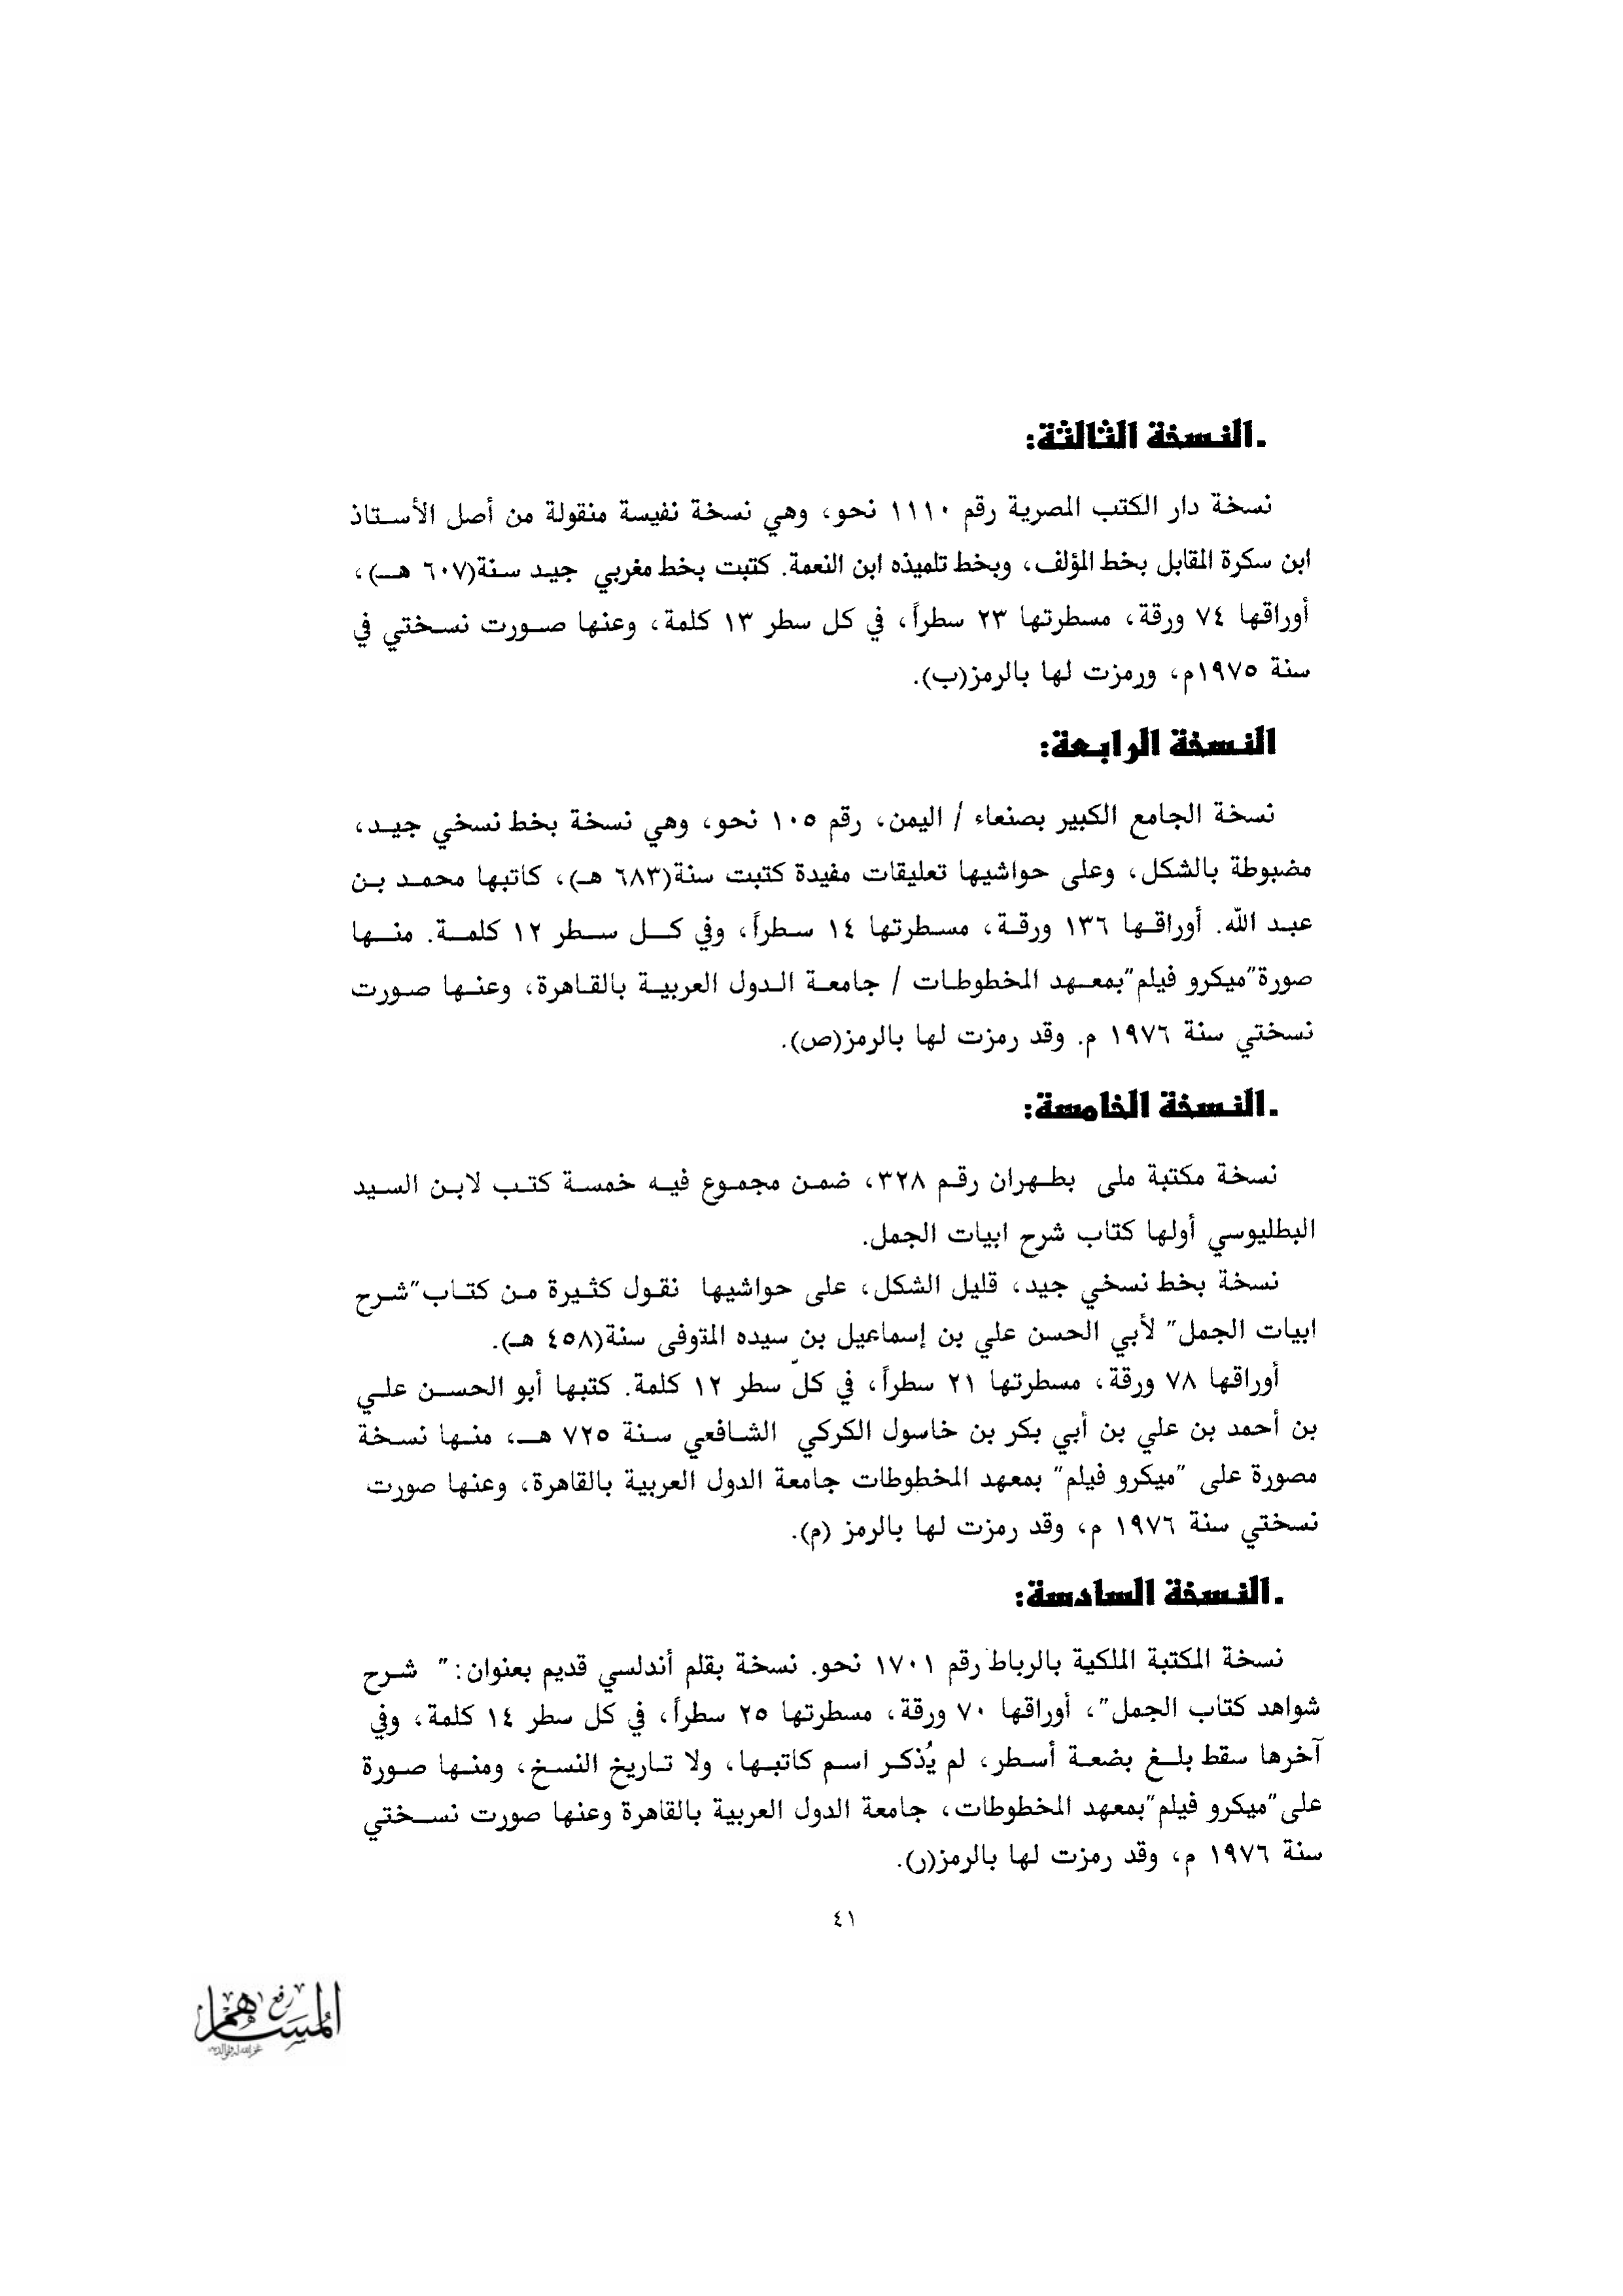 .النسخة الثالثة:
نسخة دار الكتب المصرية رقم ١١١٠ نحو، وهي نسخة نفيسة منقولة من أصل الأستاذ
ابن سكرة المقابل بخط المؤلف، وبخط تلميذه ابن النعمة. كتبت بخط مغربي جيد سنة(٦٠٧ هـ)،
أوراقها ٧٤ ورقة، مسطرتها ٢٣ سطراً، في كل سطر ١٣ كلمة، وعنها صورت نسختي في
سنة ١٩٧٥م، ورمزت لها بالرمز(ب).
النسخة الرابعة:
نسخة الجامع الكبير بصنعاء / اليمن، رقم ١٠٥ نحو، وهي نسخة بخط نسخي جيد،
مضبوطة بالشكل، وعلى حواشيها تعليقات مفيدة كتبت سنة(٦٨٣ هـ)، كاتبها محمد بن
عبد الله. أوراقها ١٣٦ ورقة، مسطرتها ١٤ سطراً، وفي كل سطر ١٢ كلمة. منها
صورة"ميكرو فيلم"بمعهد المخطوطات / جامعة الدول العربية بالقاهرة، وعنها صورت
نسختي سنة ١٩٧٦ م. وقد رمزت لها بالرمز(ص).
.النسخة الخامسة:
نسخة مكتبة ملى بطهران رقم ٣٢٨، ضمن مجموع فيه خمسة كتب لابن السيد
البطليوسي أولها كتاب شرح ابيات الجمل.
نسخة بخط نسخي جيد، قليل الشكل، على حواشيها نقول كثيرة من كتاب"شرح
ابيات الجمل" لأبي الحسن علي بن إسماعيل بن سيده المتوفى سنة(٤٥٨ هـ).
أوراقها ٧٨ ورقة، مسطرتها ٢١ سطراً، في كلّ سطر ١٢ كلمة. كتبها أبو الحسن علي
بن أحمد بن علي بن أبي بكر بن خاسول الكركي الشافعي سنة ٧٢٥ هـ، منها نسخة
مصورة على "ميكرو فيلم" بمعهد المخطوطات جامعة الدول العربية بالقاهرة، وعنها صورت
نسختي سنة ١٩٧٦ م، وقد رمزت لها بالرمز (م).
.النسخة السادسة:
نسخة المكتبة الملكية بالرباط رقم ١٧٠١ نحو. نسخة بقلم أندلسي قديم بعنوان:" شرح
شواهد كتاب الجمل"، أوراقها ٧٠ ورقة، مسطرتها ٢٥ سطراً، في كل سطر ١٤ كلمة، وفي
آخرها سقط بلغ بضعة أسطر، لم يُذكر اسم كاتبها، ولا تاريخ النسخ، ومنها صورة
على"ميكرو فيلم"بمعهد المخطوطات، جامعة الدول العربية بالقاهرة وعنها صورت نسختي
سنة ١٩٧٦ م، وقد رمزت لها بالرمز(ر).
٤١
رفع
المساهم